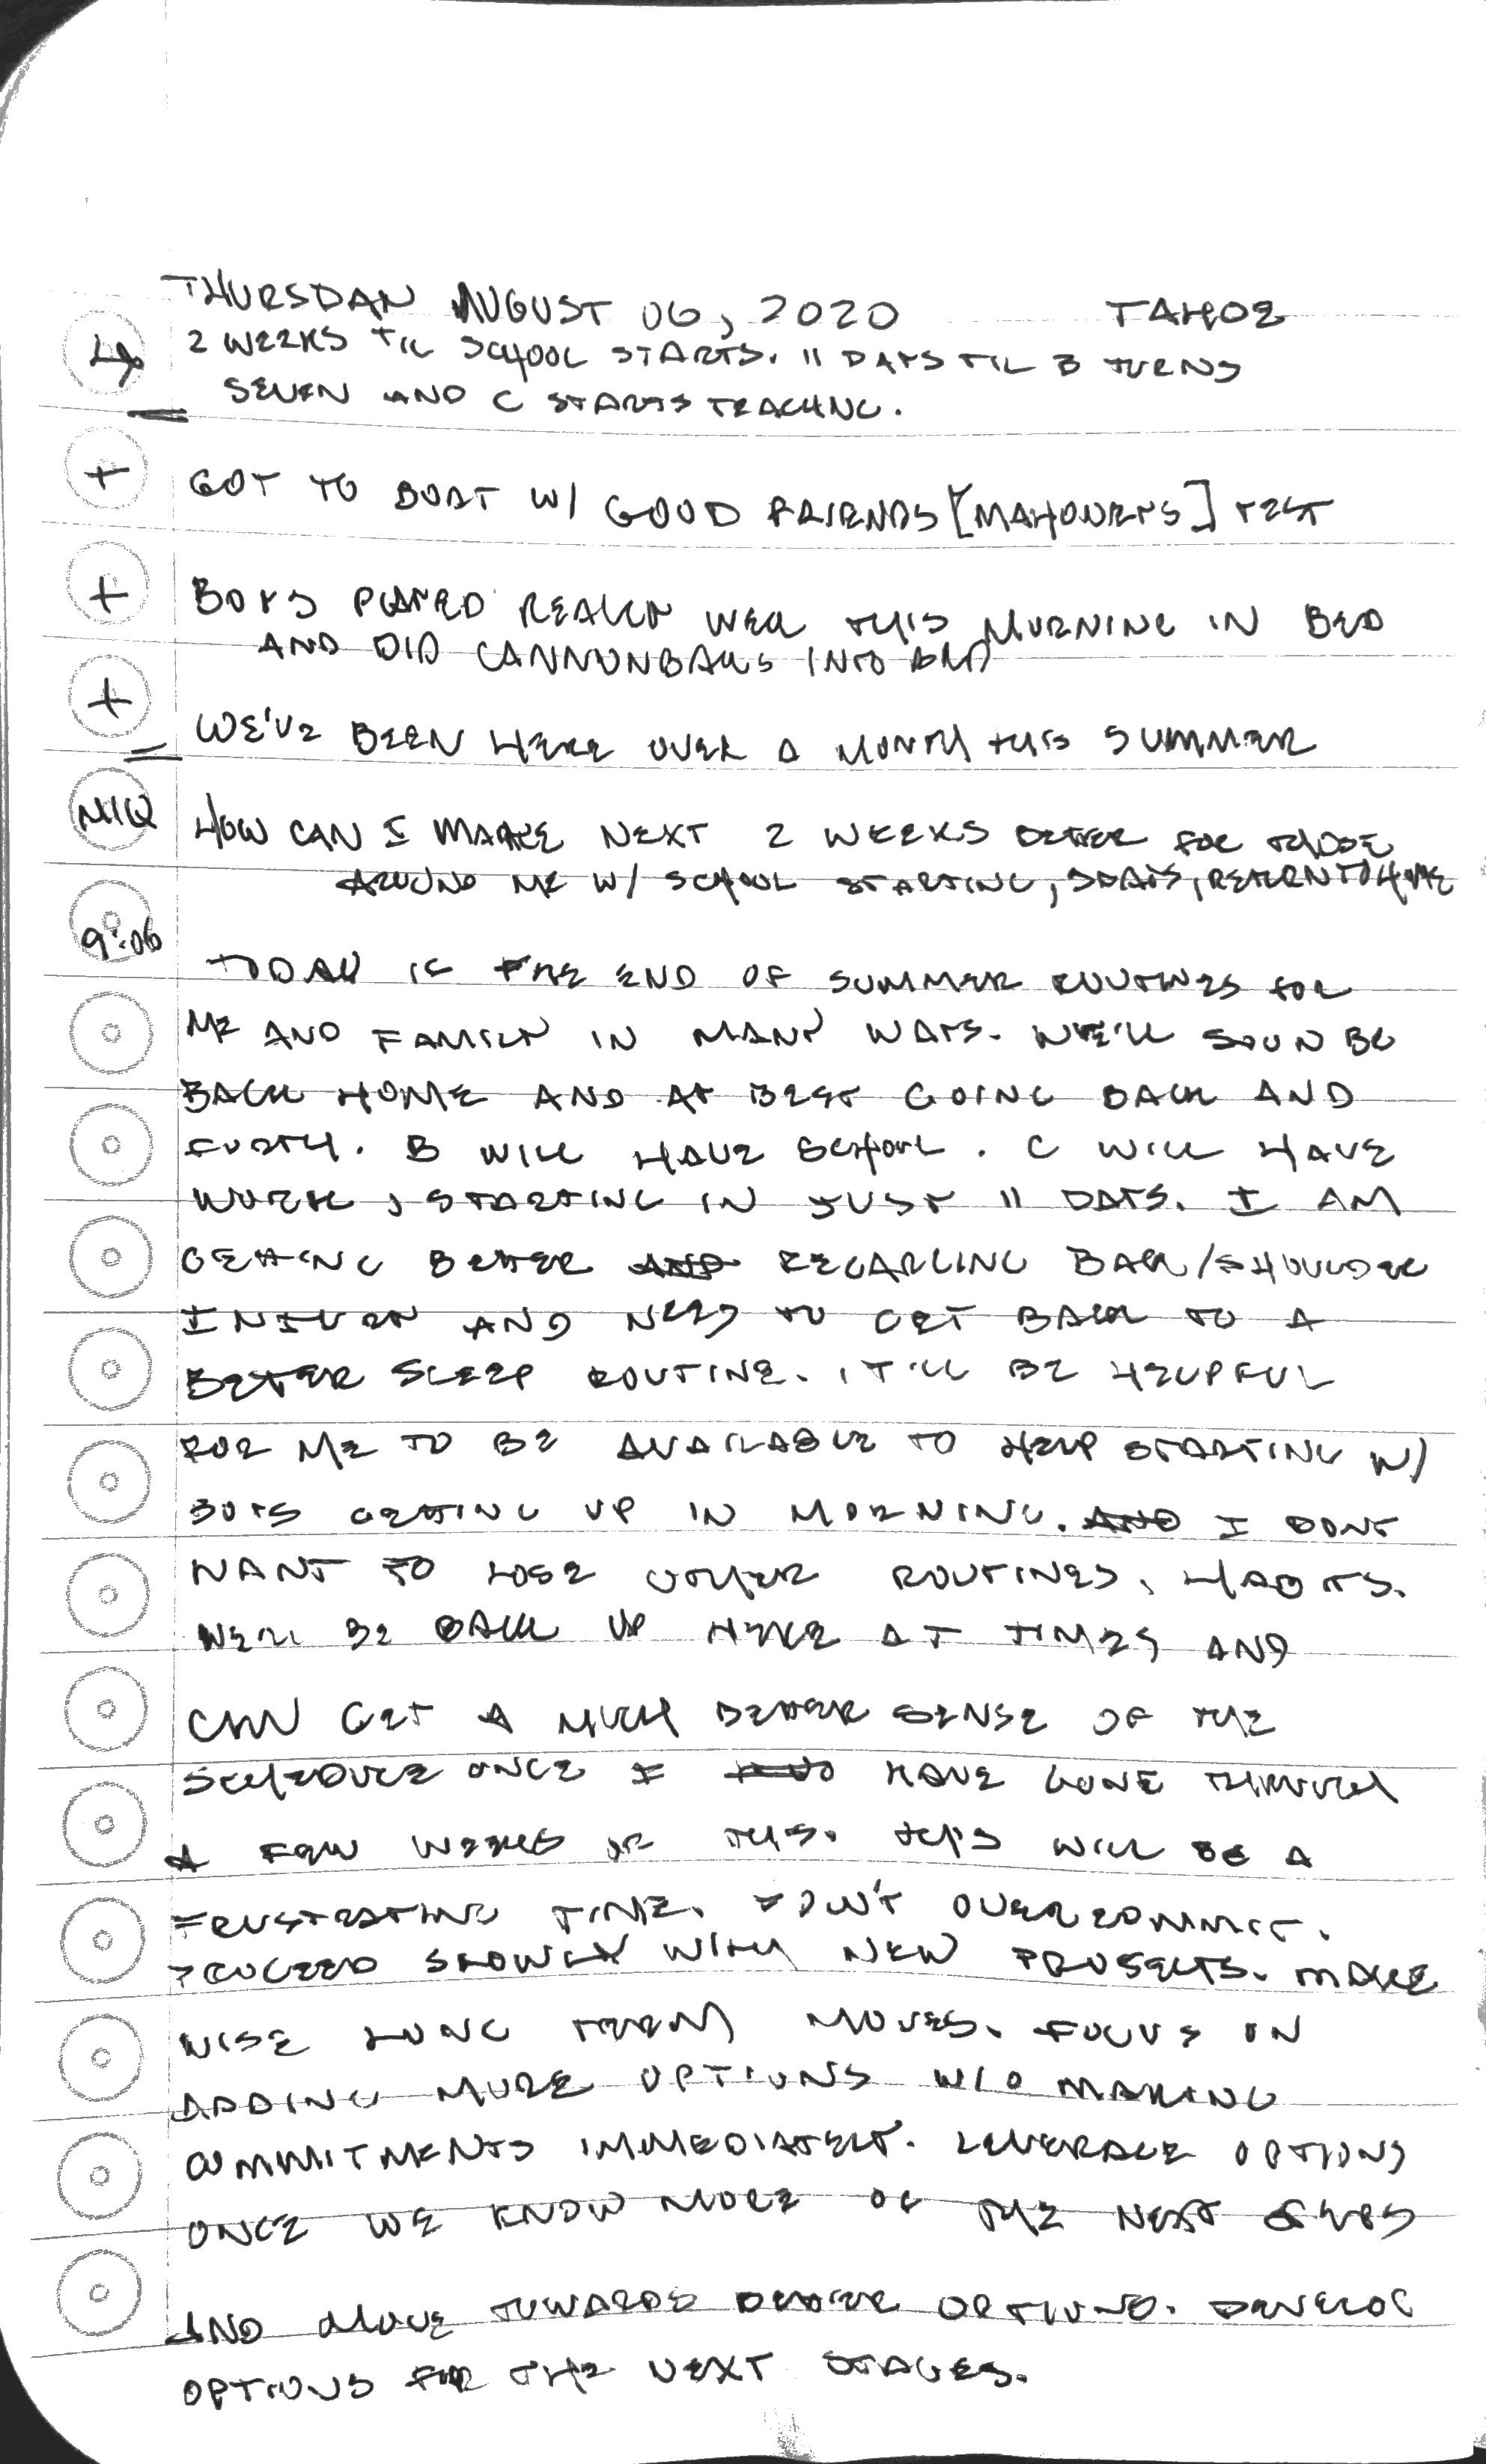 THURSDAY AUGUST 06, 2020 TAHOE
2 WEEKS TIL SCHOOL STARTS. 11 DAYS TIL B TURNS
SEVEN AND C STARTS TEACHING.
+ GOT TO BOAT W/ GOOD FRIENDS [MAHONEYS] YEST
+ BOYS PLAYED REALLY WELL THIS MORNING IN BED
AND DID CANNONBALLS INTO BED
+ WE'VE BEEN HERE OVER A MONTH THIS SUMMER
MIQ HOW CAN I MAKE NEXT 2 WEEKS BETTER FOR THOSE
AROUND ME W/ SCHOOL STARTING, RETURN TO HOME
9:06
TODAY IS THE END OF SUMMER ROUTINES FOR
ME AND FAMILY IN MANY WAYS. WE'LL SOON BE
BACK HOME AND AT BEST GOING BACK AND
FORTH. B WILL HAVE SCHOOL. C WILL HAVE
WORK, STARTING IN JUST 11 DAYS. I AM
GETTING BETTER AND REGARDING BACK/SHOULDER
INJURY AND NEED TO GET BACK TO A
BETTER SLEEP ROUTINE. IT'LL BE HELPFUL
FOR ME TO BE AVAILABLE TO HELP STARTING W/
BOYS GETTING UP IN MORNING. AND I DONT
WANT TO LOSE OTHER ROUTINES, HABITS.
WE'LL BE BACK UP HERE AT TIMES AND
CAN GET A MUCH BETTER SENSE OF THE
SCHEDULE ONCE I HAVE GONE THROUGH
A FEW WEEKS OF THIS. THIS WILL BE A
FRUSTRATING TIME. DON'T OVERCOMMIT.
PROCEED SLOWLY WITH NEW PROJECTS. MAKE
WISE LONG TERM MOVES. FOCUS ON
ADDING MORE OPTIONS W/O MAKING
COMMITMENTS IMMEDIATELY. LEVERAGE OPTIONS
ONCE WE KNOW MORE OF THE NEXT STEPS
AND MOVE TOWARDS BETTER OPTIONS. DEVELOP
OPTIONS FOR THE NEXT STAGES.